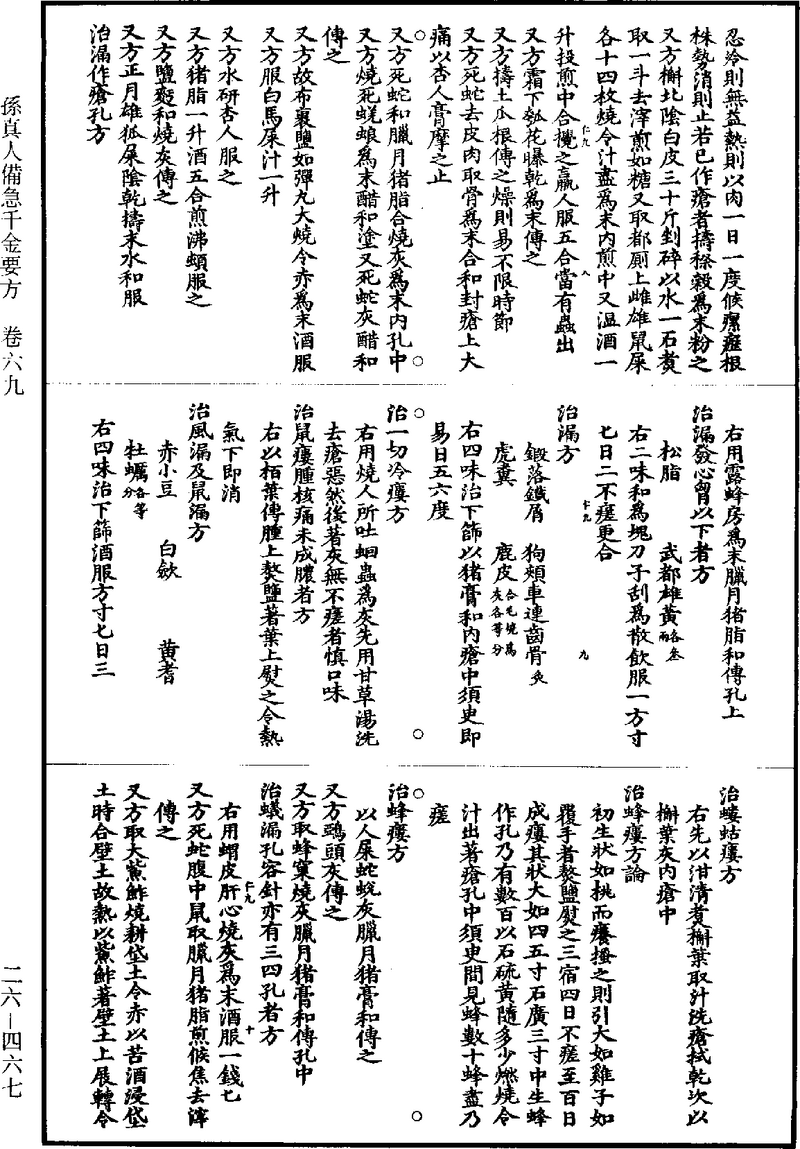 忍冷則無益熱則以肉一日一度候瘰癧根
株勢消則止若已作瘡者擣䅟穀為末粉之
又方槲北陰白皮三十斤剉碎以水一石煑
取一斗去滓煎如糖又取都厠上雌雄鼠屎
各十四枚燒令汁盡為末内煎中又温酒一
升投煎中合攪之羸人服五合當有蟲出
又方霜下瓠花曝乾為末傅之
又方擣土瓜根傅之燥則易不限時節
又方死蛇去皮肉取骨為末合和封瘡上大
痛以杏人膏摩之止
又方死蛇和臘月猪脂合燒灰為末内孔中
又方燒死蜣蜋為末醋和塗又死蛇灰醋和
傅之
又方故布裹鹽如彈丸大燒令赤為末酒服
又方服白馬屎汁一升
又方水研杏人服之
又方猪脂一升酒五合煎沸頓服之
又方鹽麪和燒灰傅之
又方正月雄狐屎陰乾擣末水和服
治漏作瘡孔方
右用露蜂房為末臘月猪脂和傅孔上
治漏發心胷以下者方
松脂 武都雄黄各叁兩
右二味和為塊刀子刮為散飲服一方寸
七日二不瘥更合
治漏方
鍜落鐵屑 狗頰車連齒骨炙
虎糞 鹿皮合毛燒為灰各等分
右四味治下篩以猪膏和内瘡中須臾即
易日五六度
治一切冷瘻方
右用燒人所吐蛔蟲為灰先用甘草湯洗
去瘡惡然後著灰無不瘥者慎口味
治鼠瘻腫核痛未成膿者方
右以栢葉傅腫上熬鹽著葉上熨之令熱
氣下即消
治風漏及鼠漏方
赤小豆 白斂 黄耆
牡蠣各等分
右四味治下篩酒服方寸七日三
治螻蛄瘻方
右先以泔清煑槲葉取汁洗瘡拭乾次以
槲葉灰内瘡中
治蜂瘻方論
初生狀如桃而癢搔之則引大如雞子如
覆手者熬鹽熨之三宿四日不瘥至百日
成瘻其狀大如四五寸石廣三寸中生蜂
作孔乃有數百以石硫黄隨多少燃燒令
汁出著瘡孔中須臾間見蜂數十蜂盡乃
瘥
治蜂瘻方
以人屎蛇蛻灰臘月猪膏和傅之
又方鴟頭灰傅之
又方取蜂窠燒灰臘月猪膏和傅孔中
治蟻漏孔容針亦有三四孔者方
右用蝟皮肝心燒灰為末酒服一錢七
又方死蛇腹中鼠取臘月猪脂煎候焦去滓
傅之
又方取大鮆鮓燒耕垈土令赤以苦酒浸垈
土時合壁土故熱以鮆鮓著壁土上展轉令
孫真人備急千金要方 卷六九
二六-四六七